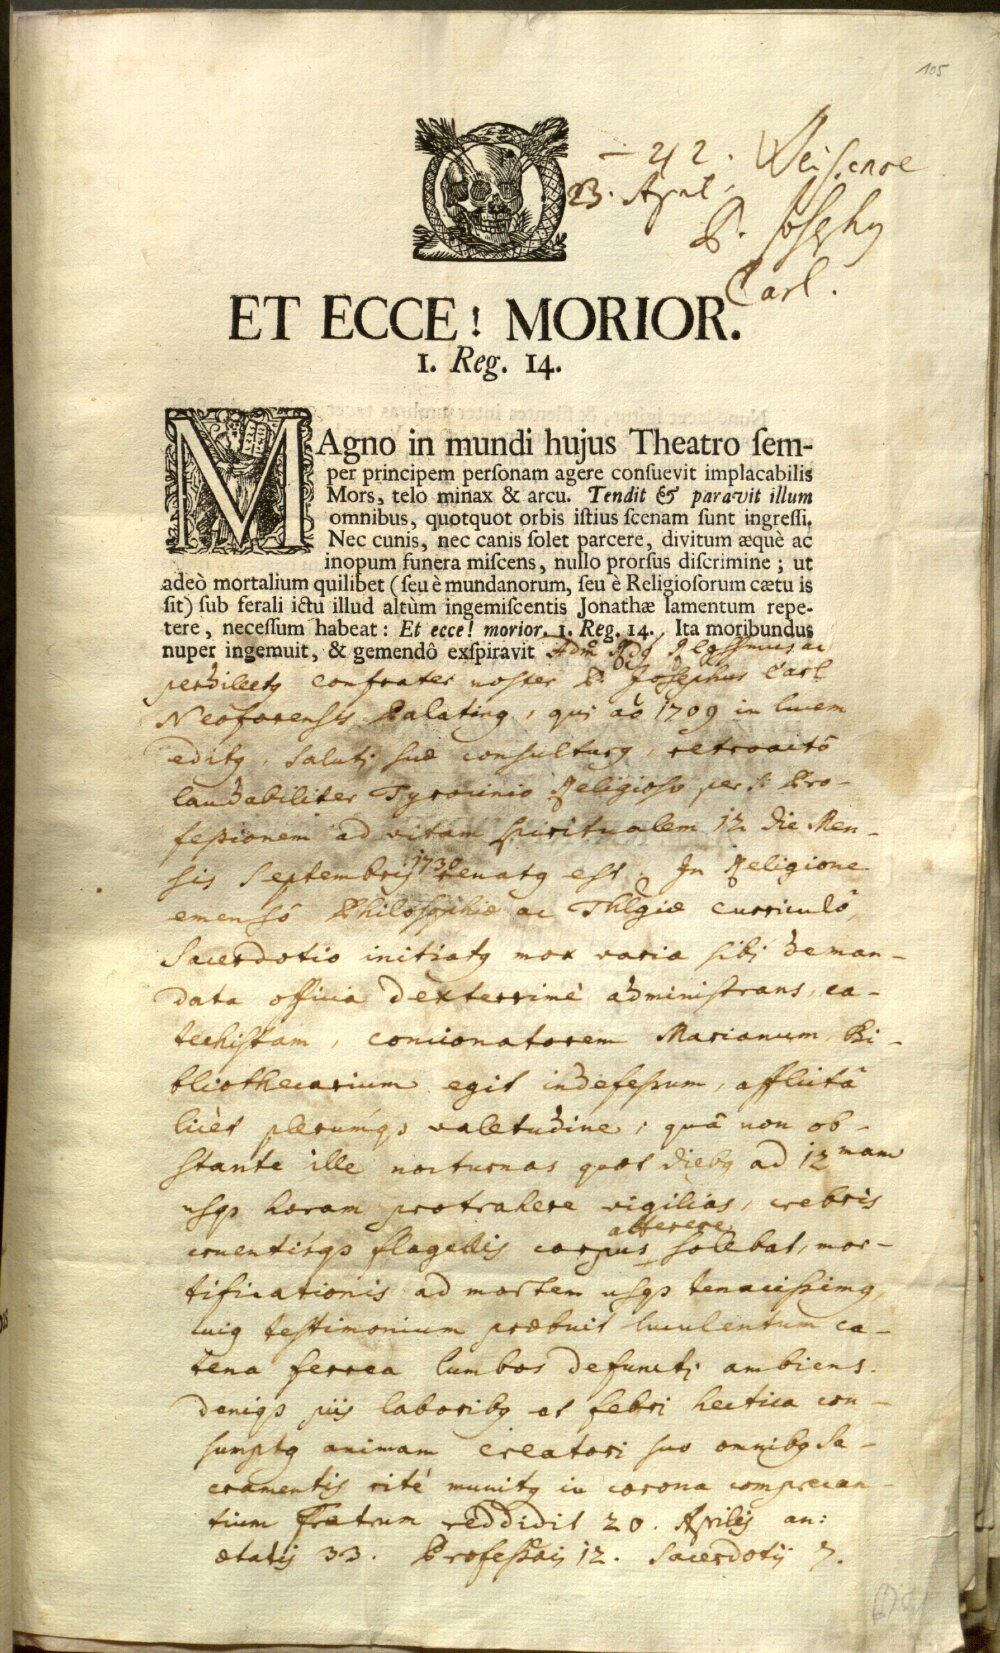 105
– 42. Weisenoe
23. April.
P. Josephy
Carl.
ET ECCE! MORIOR.
1. Reg. 14.
MAgno in mundi hujus Theatro ſem-
per principem perſonam agere conſuevit implacabilis
Mors, telo minax & arcu. Tendit & paravit illum
omnibus, quotquot orbis iſtius ſcenam ſunt ingreſſi.
Nec cunis, nec canis ſolet parcere, divitum æquè ac
inopum funera miſcens, nullo prorſus diſcrimine; ut
adeò mortalium quilibet (ſeu è mundanorum, ſeu è Religioſorum cætu is
ſit) ſub ferali ictu illud altùm ingemiſcentis Jonathæ lamentum repe-
tere, neceſſum habeat: Et ecce! morior. 1. Reg. 14. Ita moribundus
nuper ingemuit, & gemendô exſpiravit Adm Rdg Rlgſſimus ac
perdilectg confrater noster P. Josephus Carl
Neoforensis Palating, qui aõ 1709 in lucem
editg, saluti suæ consulturg, retroactô
laudabiliter Tyrocinio Religioso per s: Pro-
feſsionem ad vitam spiritualem 12 die Men-
sis Septembris 1730 renatg est. In Religione
emensô Philosophiæ ac Thlgiæ curriculô,
Sacerdotio initiatg mox varia sibi deman-
data officia dexterrimè adminiſtrans, ca-
techiſtam, concionatorem Marianum, Bi-
bliothecarium egit indefeſsum, afflictâ
licèt plerumqs valetudine, quâ non ob-
stante ille nocturnas quot diebg ad 12mam
usqs horam protrahere vigilias, crebris
cruentisqs flagellis corpus atterere solebat, mor-
tificationis ad mortem usqs tenaciſsimg,
cuig teſtimonium præbuit luculentum ca-
tena ferrea lumbos defuncti ambiens.
deniqs piis laboribg et febri hectica con-
sumptg animam creatori suo omnibg Sa-
cramentis ritè munitg in corona comprecan-
tium Fratrum reddidit 20. Aprilis an:
ætatis 33. Profeſsõis 12. Sacerdotij 7.